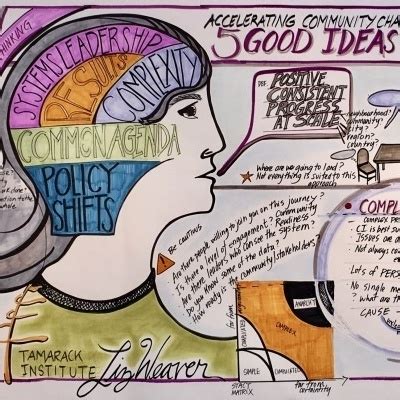 THINKING
ACCELERATING COMMUNITY CHA
5 GOOD IDEAS
SYSTEMS LEADERSHIP
RESULTS
COMPLEXITY
COMMON AGENDA
POLICY
SHIFTS
DEF:
POSITIVE
CONSISTENT
PROGRESS
AT SCALE
neighbourhood?
community?
city?
region?
country?
* Where are we going to land?
* Not everything is suited to this
approach
BE CAUTIOUS
Are there people willing to join you on this journey?
Is there a level of engagement? Community
Readiness
Are there leaders who can see the system?
Do you know some of the data?
How ready is the community/stakeholders?
COMPL
COMPLEX PR
CI is best su
ISSUES are
Not always co
Lots of PERS
No single me
? what are th
CAUSE
ANARCHY
COMPLEX
COMPLICATED
SIMPLE
COMPLICATED
STACY
MATRIX
far from
certainty
TAMARACK
INSTITUTE
Liz Weaver